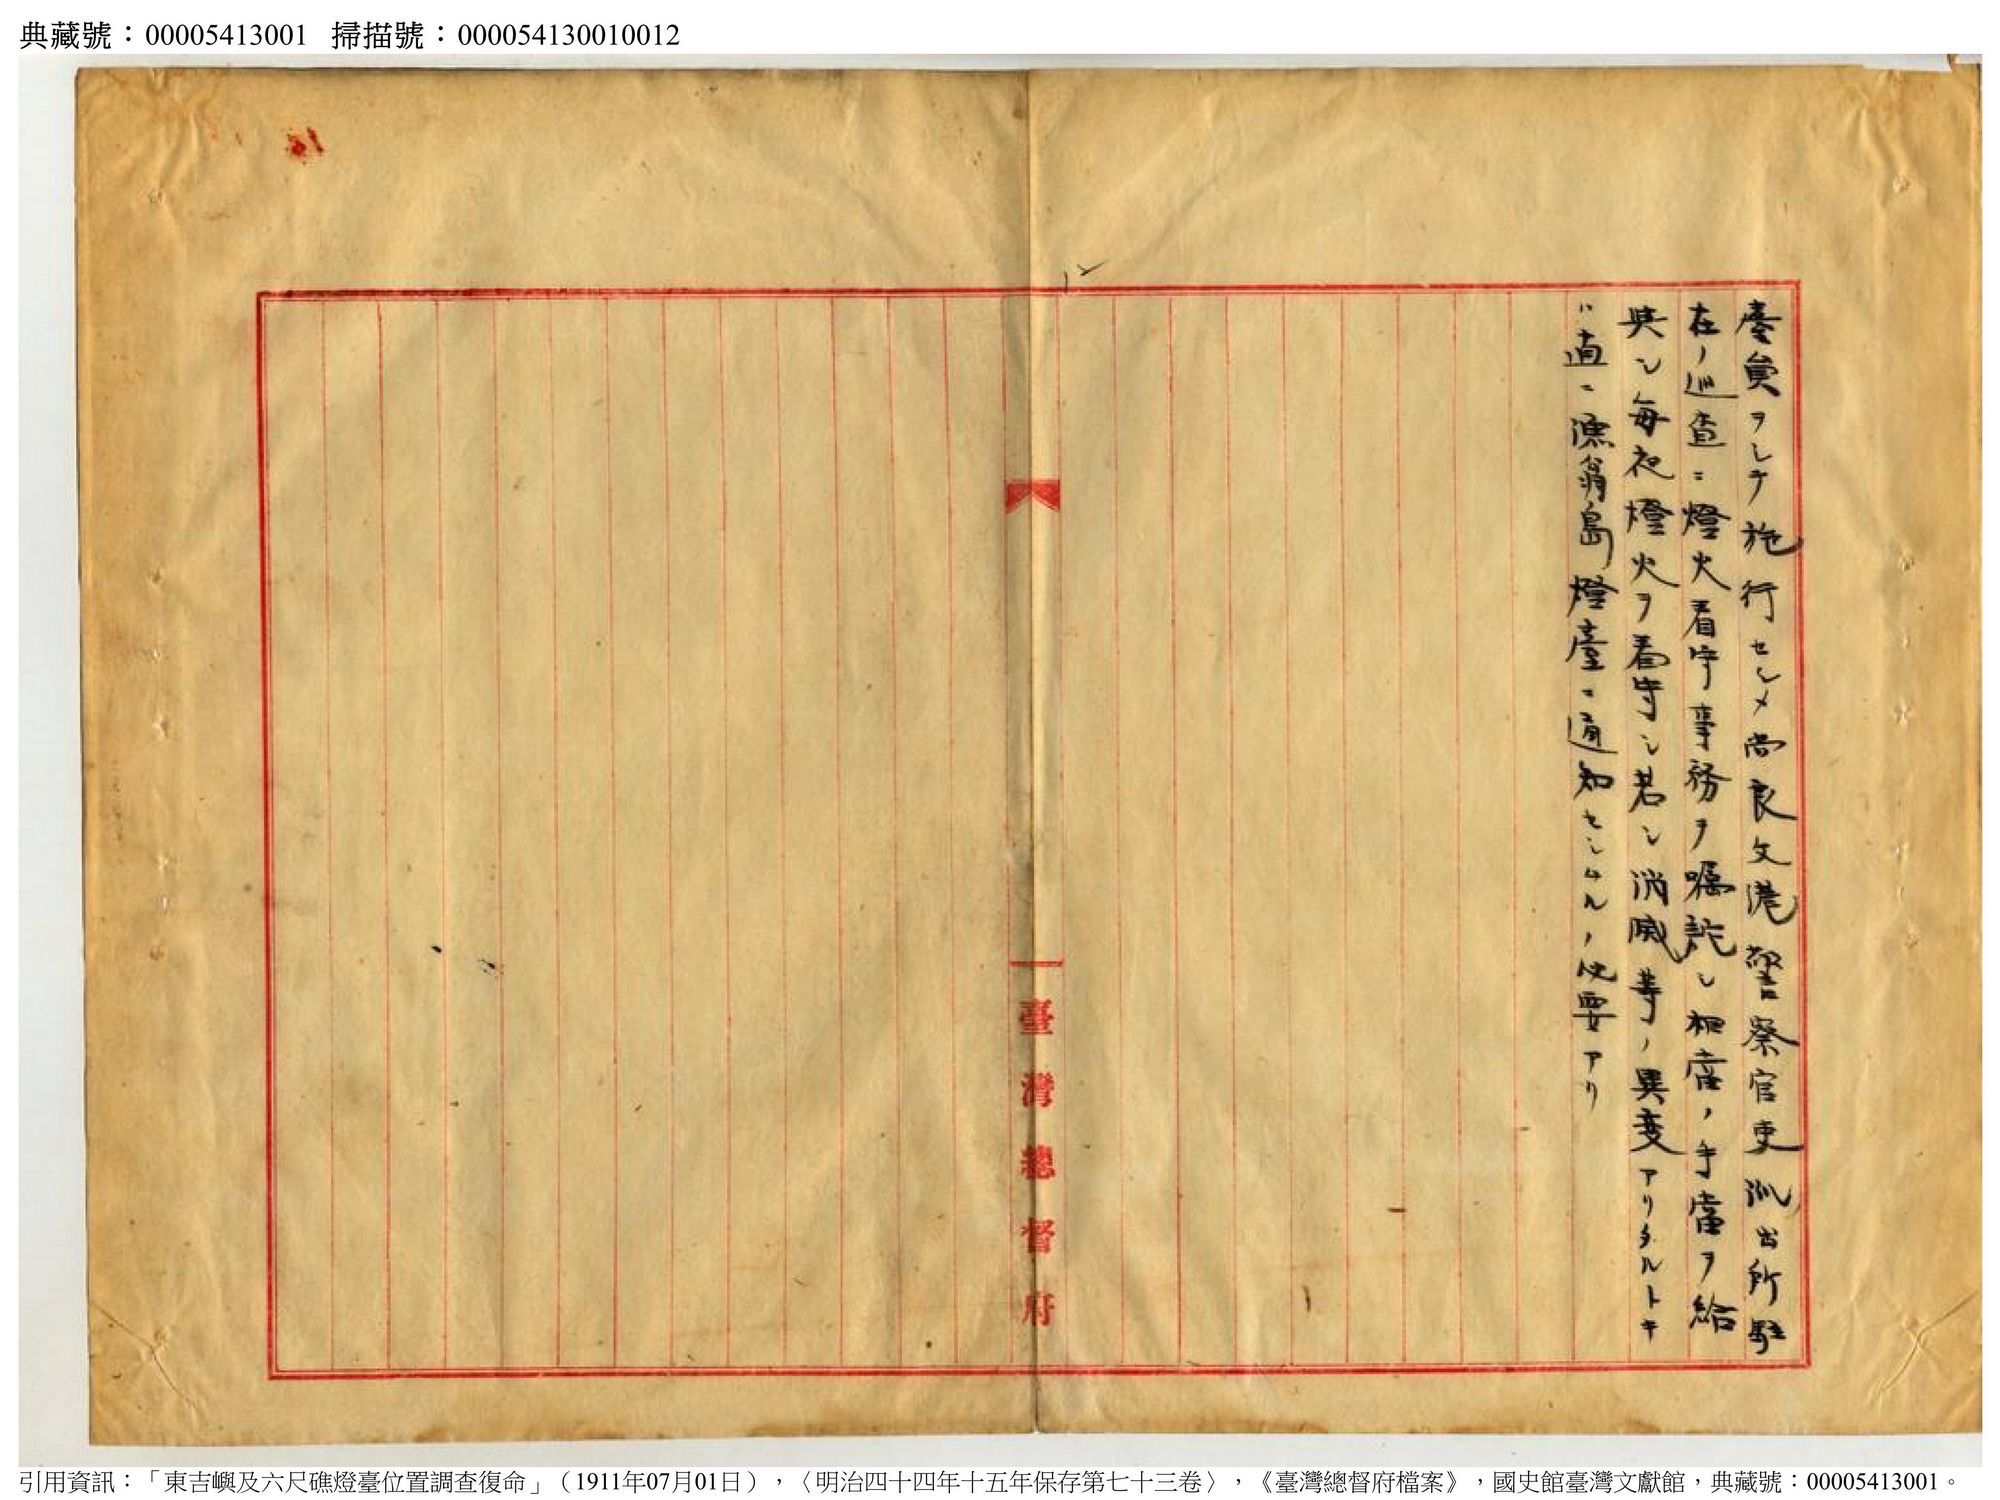 典藏號：00005413001 掃描號：000054130010012
臺員ヲシテ施行セシメ尚良文港警察官吏派出所駐
在ノ巡査ニ燈火看守事務ヲ囑託シ相當ノ手當ヲ給
與シ毎夜燈火ヲ看守シ若シ消滅等ノ異変アリタルトキ
ハ直ニ漁翁島燈臺ニ通知セシムルノ必要アリ
臺灣總督府
引用資訊：「東吉嶼及六尺礁燈臺位置調查復命」（1911年07月01日），〈明治四十四年十五年保存第七十三卷〉，《臺灣總督府檔案》，國史館臺灣文獻館，典藏號：00005413001。